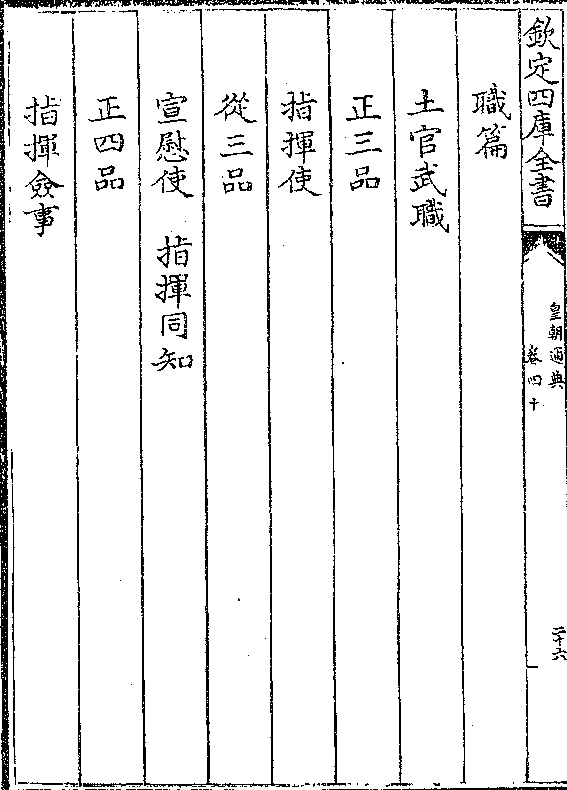 欽定四庫全書
皇朝通典
卷四十
二十六
職篇
土官武職
正三品
指揮使
從三品
宣慰使　指揮同知
正四品
指揮僉事